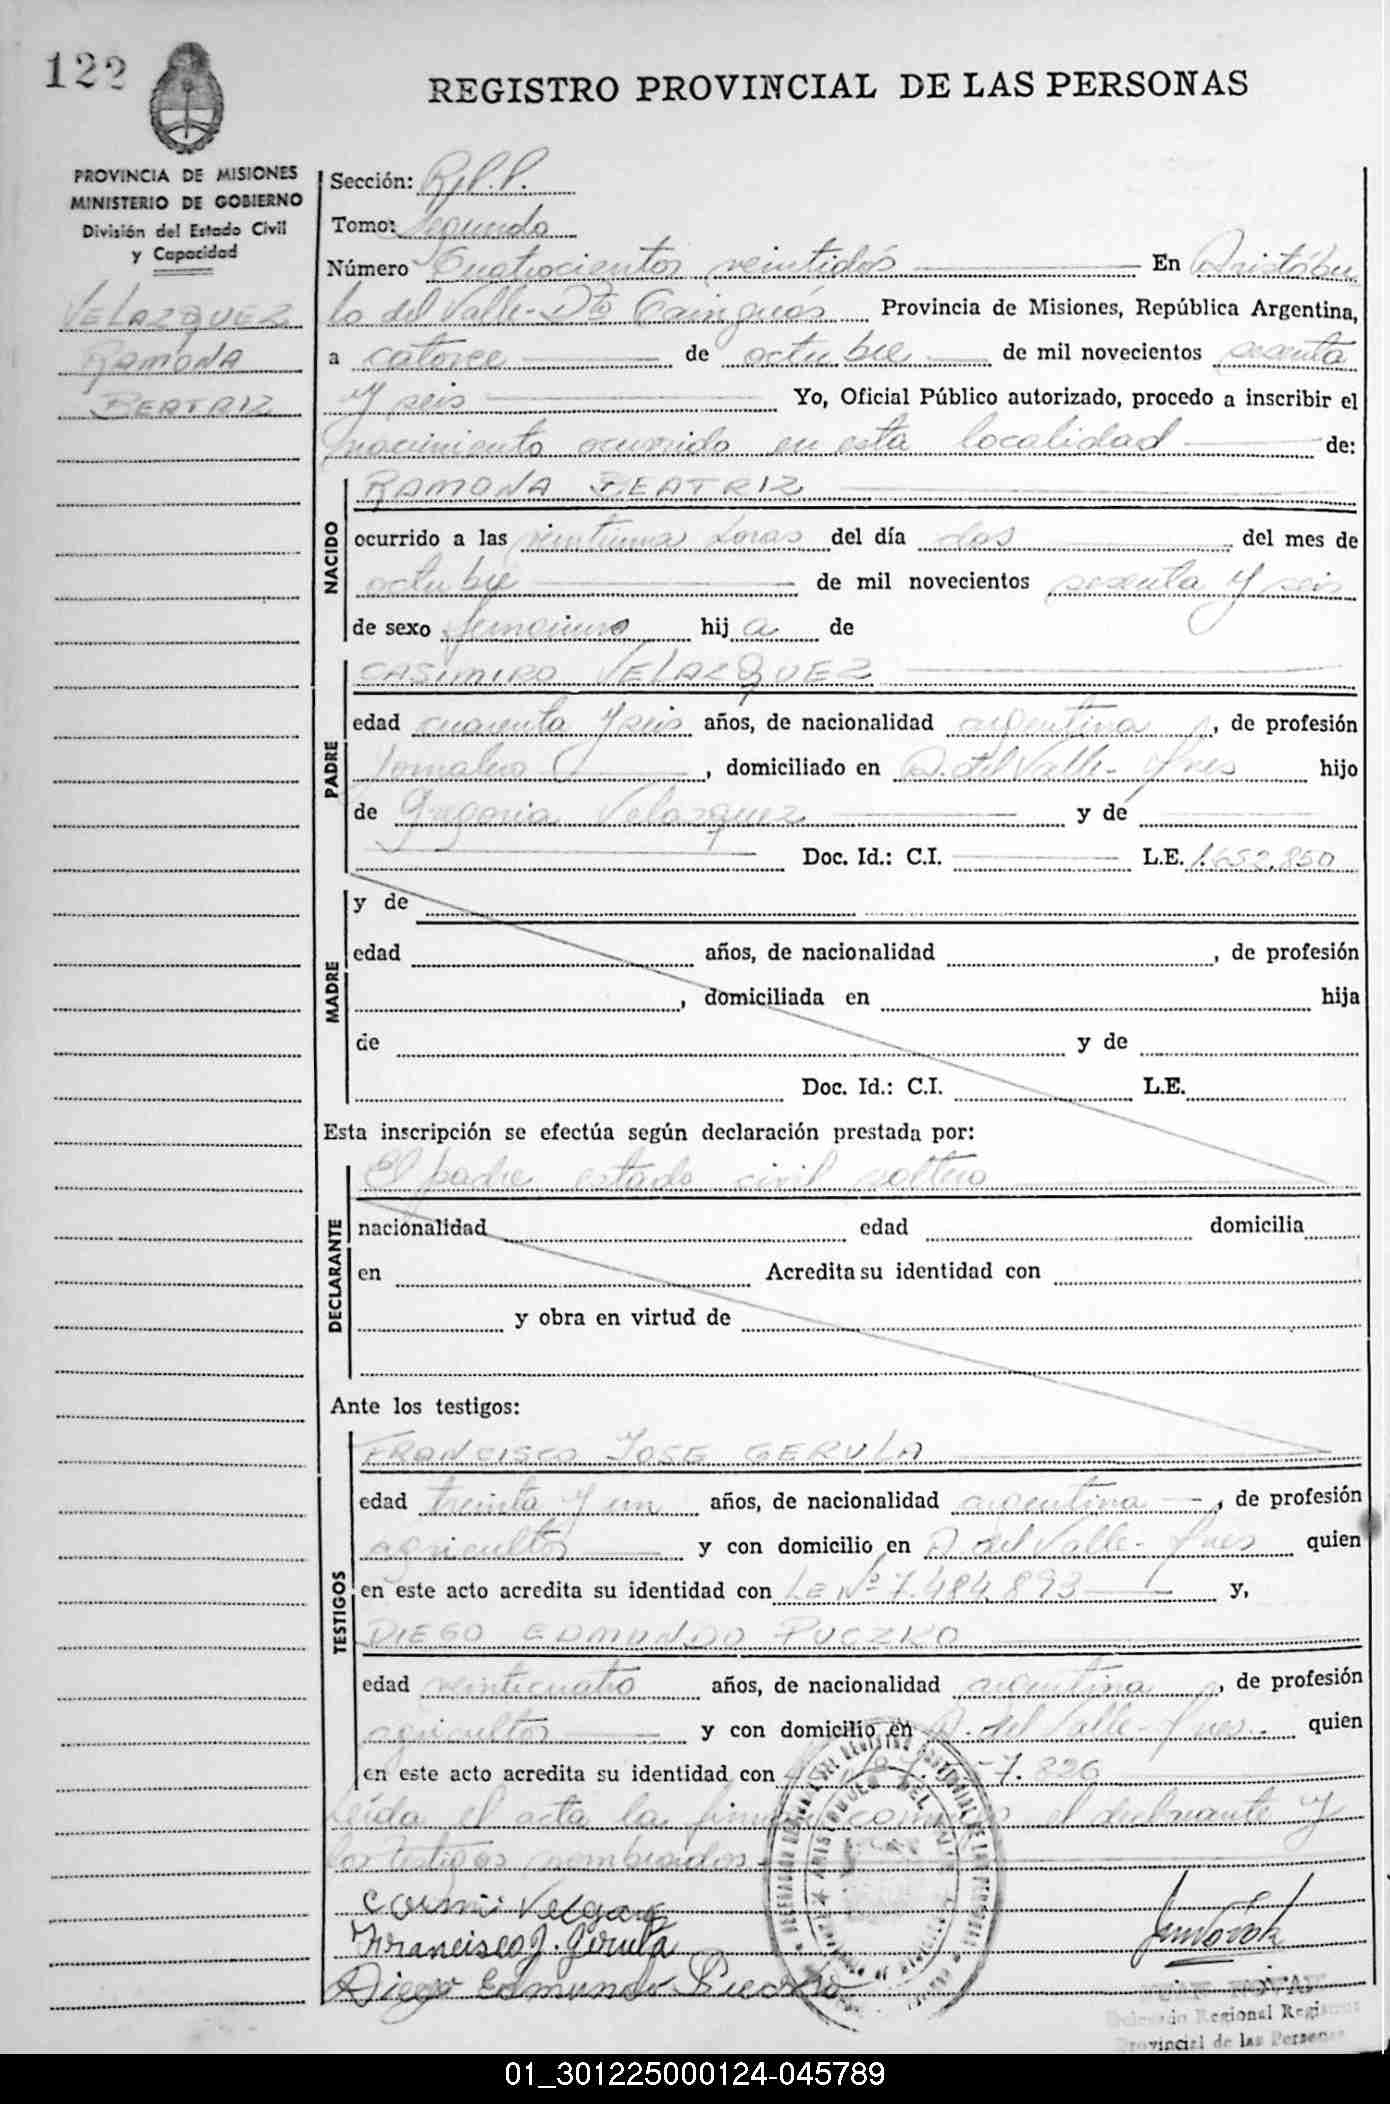 122
REGISTRO PROVINCIAL DE LAS PERSONAS
PROVINCIA DE MISIONES
MINISTERIO DE GOBIERNO
División del Estado Civil
y Capacidad
VELAZQUEZ
RAMONA
BEATRIZ
Sección:
Tomo: Segundo
Número Cuatrocientos veintidós En Aristóbu
lo del Valle - Dto Cainguás Provincia de Misiones, República Argentina,
a catorce de octubre de mil novecientos sesenta
y seis Yo, Oficial Público autorizado, procedo a inscribir el
nacimiento ocurrido en esta localidad de:
NACIDO
RAMONA BEATRIZ
ocurrido a las veintiuna horas del día dos del mes de
octubre de mil novecientos sesenta y seis
de sexo femenino hija de
PADRE
CASIMIRO VELAZQUEZ
edad cuarenta y seis años, de nacionalidad argentina, de profesión
jornalero, domiciliado en A. del Valle - Mnes hijo
de Gregoria Velazquez y de
Doc. Id.: C.I. L.E. 1.652.850
MADRE
y de
edad años, de nacionalidad , de profesión
, domiciliada en hija
de y de
Doc. Id.: C.I. L.E.
Esta inscripción se efectúa según declaración prestada por:
DECLARANTE
El padre estado civil soltero
nacionalidad edad domicilia
en Acredita su identidad con
y obra en virtud de
Ante los testigos:
TESTIGOS
FRANCISCO JOSE GERULA
edad treinta y un años, de nacionalidad argentina, de profesión
agricultor y con domicilio en A. del Valle - Mnes quien
en este acto acredita su identidad con LE Nº 7.484.893 y,
DIEGO EDMUNDO PUCZKO
edad veinticuatro años, de nacionalidad argentina, de profesión
agricultor y con domicilio en A. del Valle - Mnes. quien
en este acto acredita su identidad con 7.826
Leída el acta la firman conmigo el declarante y
los testigos nombrados.
Francisco J. Gerula
Diego Edmundo Puczko
JUAN NOVAK
Delegado Regional Registro
Provincial de las Personas
01_301225000124-045789